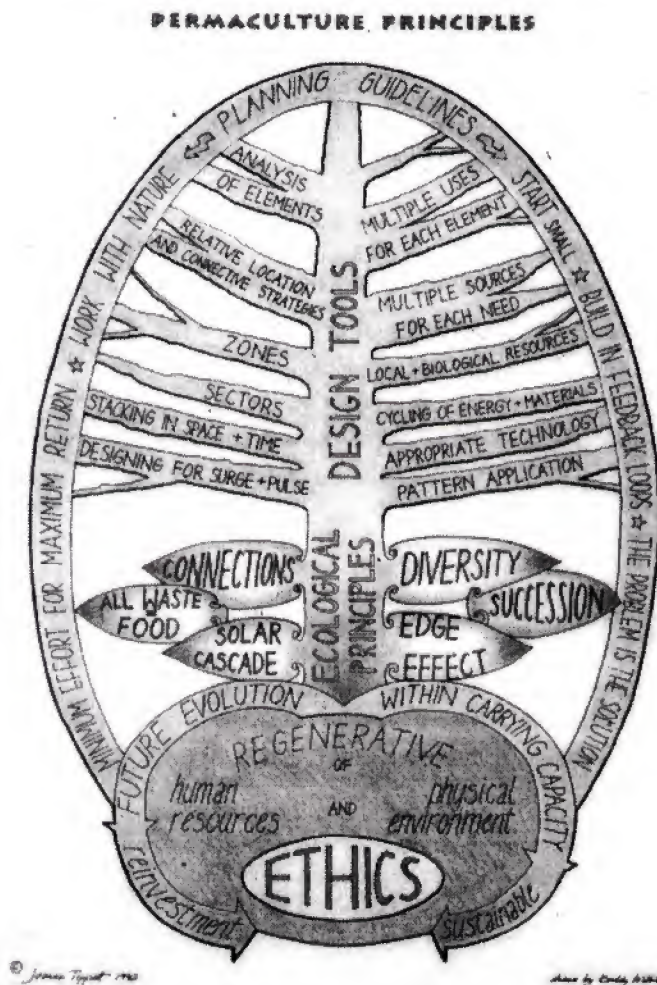 PERMACULTURE PRINCIPLES
MINIMUM EFFORT FOR MAXIMUM RETURN ☆ WORK WITH NATURE
PLANNING GUIDELINES
START SMALL ☆ BUILD IN FEEDBACK LOOPS ☆ THE PROBLEM IS THE SOLUTION
DESIGN TOOLS
ANALYSIS
OF ELEMENTS
RELATIVE LOCATION
AND CONNECTIVE STRATEGIES
ZONES
SECTORS
STACKING IN SPACE + TIME
DESIGNING FOR SURGE + PULSE
MULTIPLE USES
FOR EACH ELEMENT
MULTIPLE SOURCES
FOR EACH NEED
LOCAL + BIOLOGICAL RESOURCES
CYCLING OF ENERGY + MATERIALS
APPROPRIATE TECHNOLOGY
PATTERN APPLICATION
ECOLOGICAL
PRINCIPLES
CONNECTIONS
ALL WASTE
FOOD
SOLAR
CASCADE
DIVERSITY
SUCCESSION
EDGE
EFFECT
FUTURE EVOLUTION
WITHIN CARRYING CAPACITY
REGENERATIVE
OF
human
resources
AND
physical
environment
ETHICS
reinvestment
sustainable
©